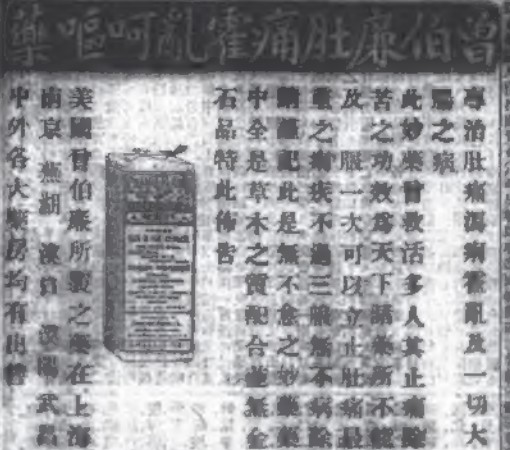 曾伯廉肚痛霍亂呵嘔藥
專治肚痛瀉痢霍亂及一切大
腸之病
此妙藥曾救活多人其止痛除
苦之功效爲天下諸藥所不能
及 服一次可以立止肚痛最
重之痢疾不過三服無不病除
記此是無不愈之妙藥藥
中全是草木之質配合並無金
石品特此佈告
美國曾伯廉所製之藥在上海
南京 蕪湖 漢陽 武昌
中外各大藥房均有出售